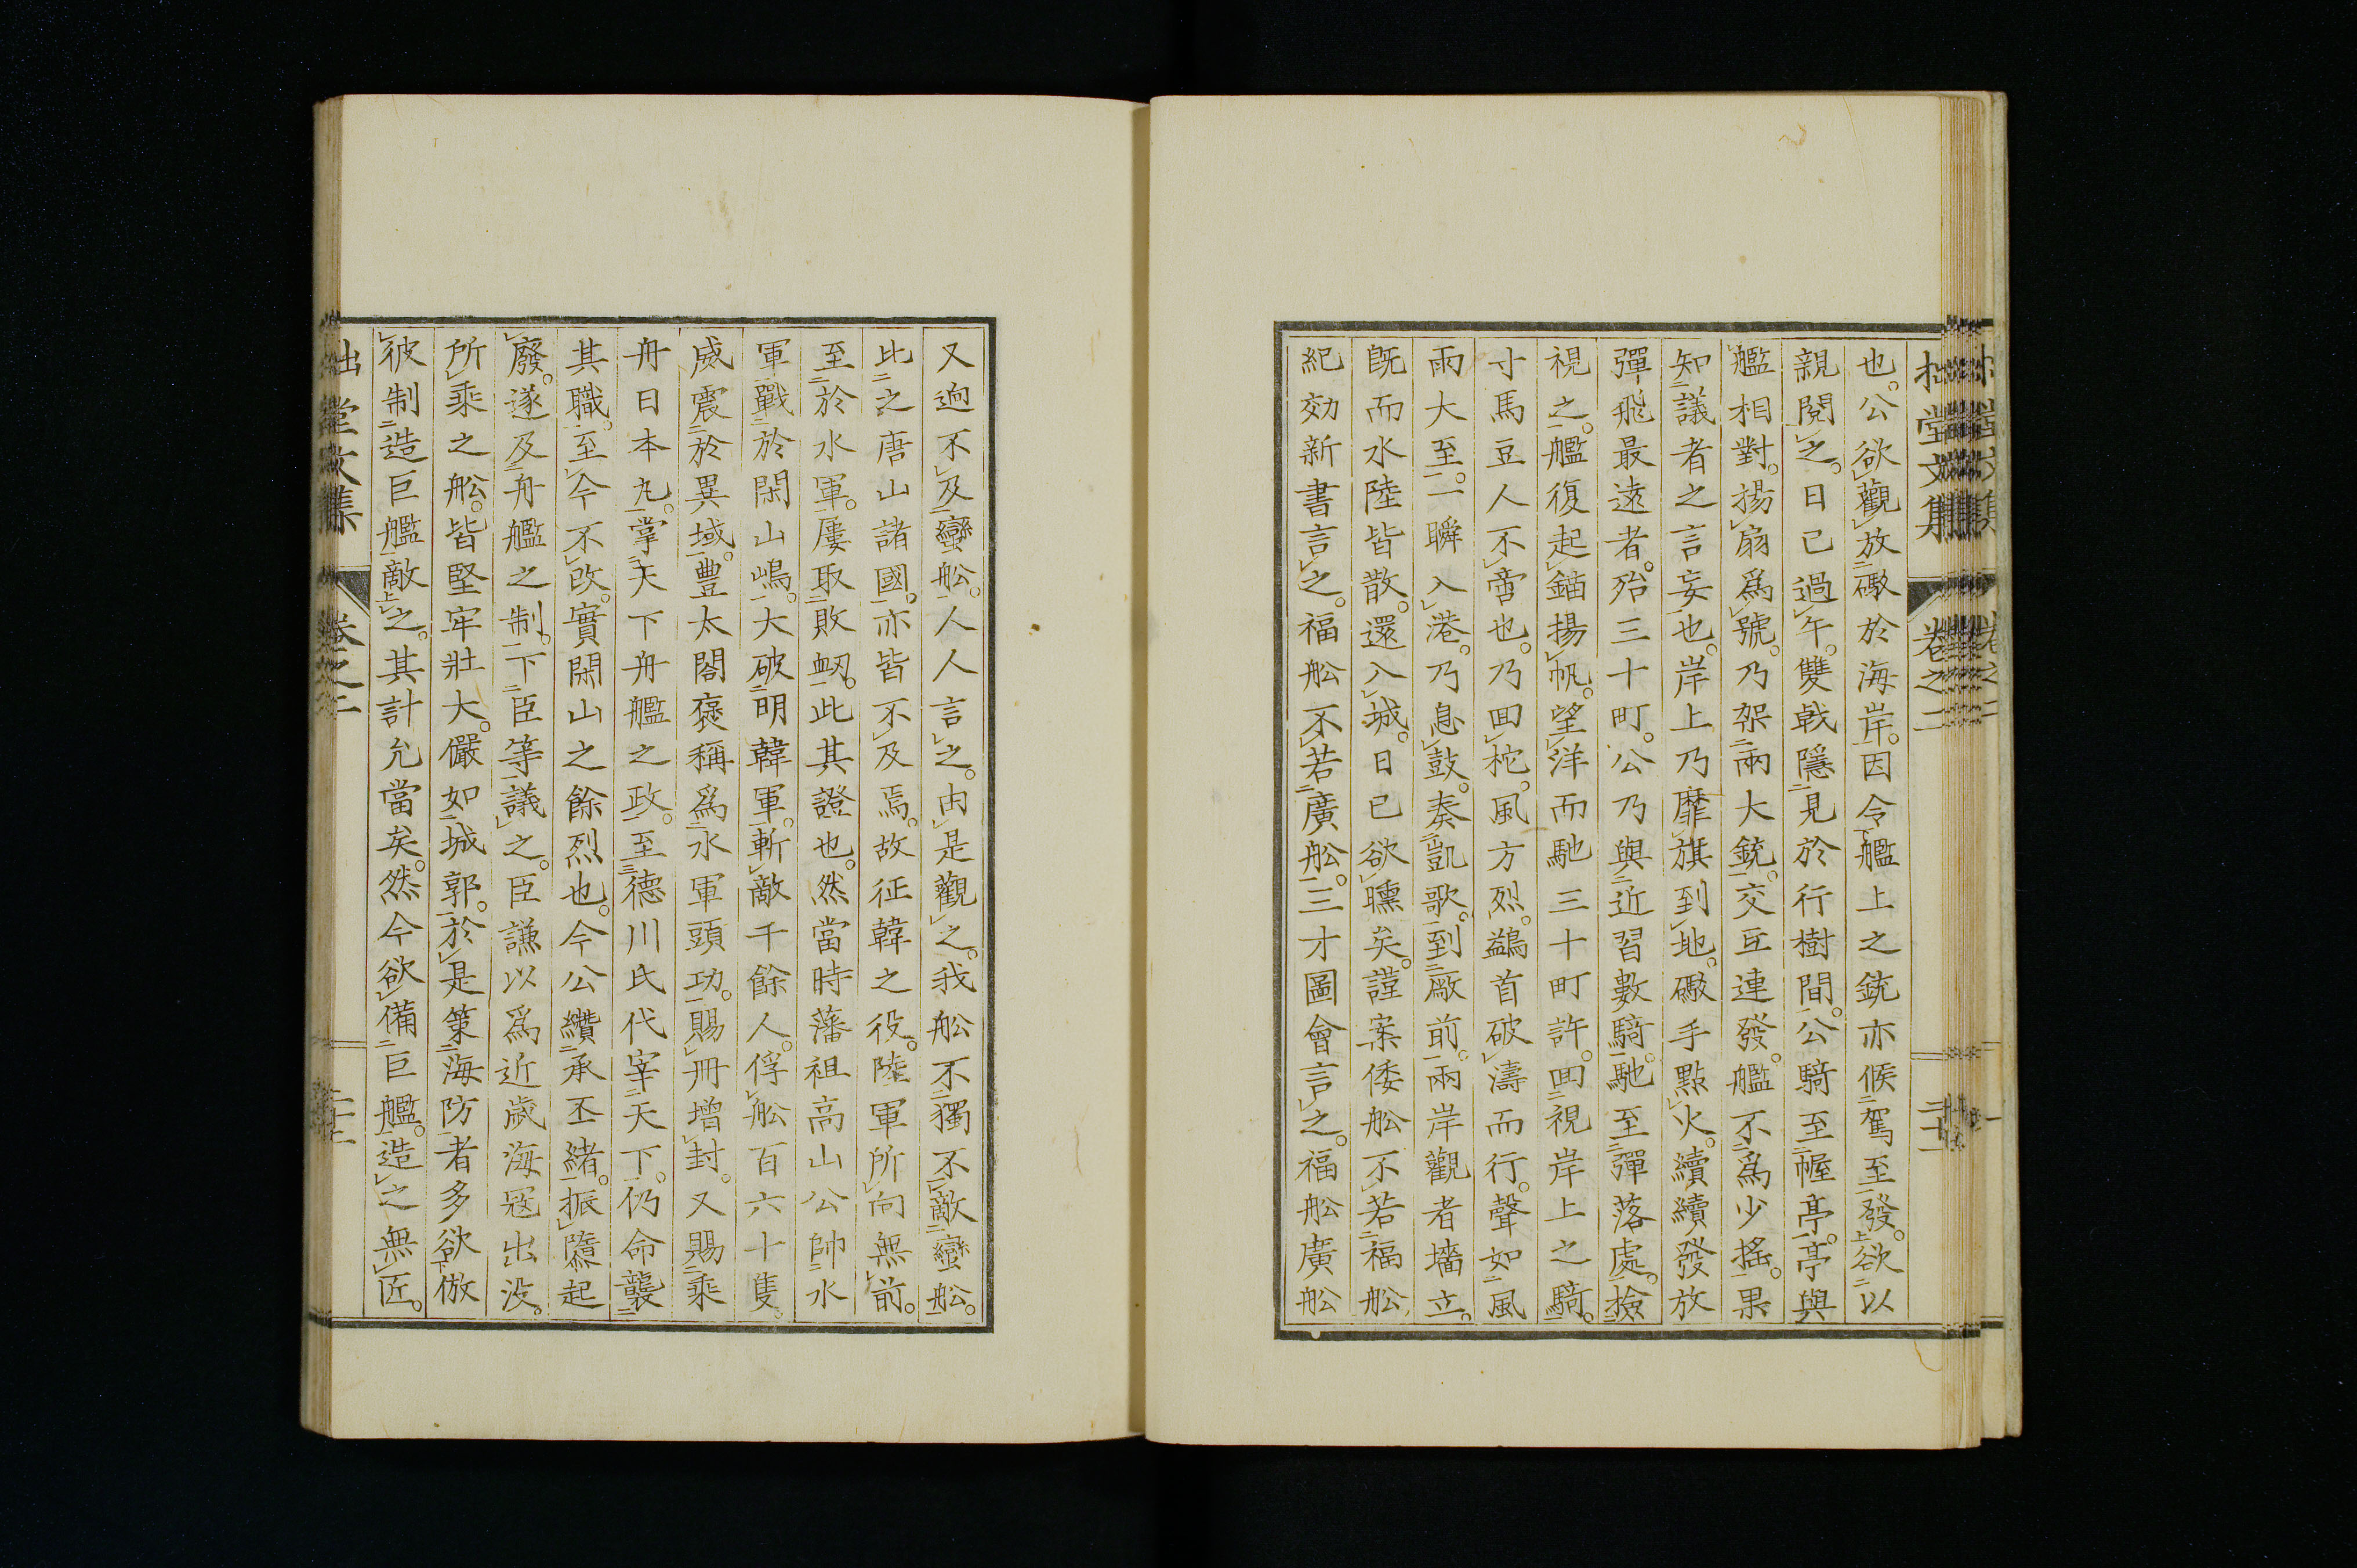 拙堂文集 卷之二 二十一
也。公欲觀放礮於海岸。因令艦上之銃亦候駕至發。欲以
親閱之。日已過午。雙戟隱見於行樹間。公騎至幄亭。亭與
艦相對。揚扇爲號。乃架兩大銃。交互連發。艦不爲少搖。果
知議者之言妄也。岸上乃靡旗到地。礮手點火。續續發放
彈飛最遠者。殆三十町。公乃與近習數騎。馳至彈落處。撿
視之。艦復起錨揚帆。望洋而馳三十町許。回視岸上之騎。
寸馬豆人不啻也。乃回柁。風方烈。鷁首破濤而行。聲如風
雨大至。一瞬入港。乃息鼓。奏凱歌。到廠前。兩岸觀者墻立。
既而水陸皆散。還入城。日已欲曛矣。謹案倭舩不若福舩
紀効新書言之。福舩不若廣舩。三才圖會言之。福舩廣舩
又逈不及蠻舩。人人言之。由是觀之。我舩不獨不敵蠻舩。
比之唐山諸國。亦皆不及焉。故征韓之役。陸軍所向無前。
至於水軍。屢取敗衂。此其證也。然當時藩祖高山公帥水
軍戰於閑山嶋。大破明韓軍。斬敵千餘人。俘舩百六十隻。
威震於異域。豊太閤褒稱爲水軍頭功。賜冊增封。又賜乘
舟日本丸。掌天下舟艦之政。至德川氏代宰天下。仍命襲
其職。至今不改。實閑山之餘烈也。今公纘承丕緒。振隳起
廢。遂及舟艦之制。下臣等議之。臣謙以爲近歲海寇出没。
所乘之舩。皆堅牢壯大。儼如城郭。於是策海防者多欲倣
彼制造巨艦敵之。其計允當矣。然今欲備巨艦。造之無匠。
拙堂文集 卷之二